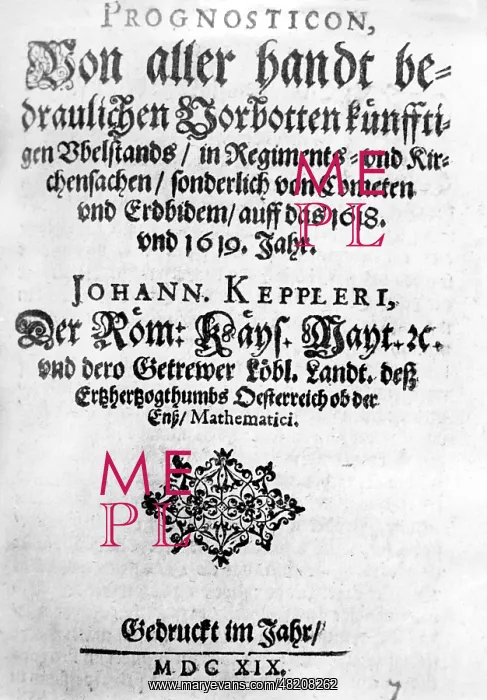 PROGNOSTICON,
Von aller handt be⸗
draulichen Vorbotten künffti⸗
gen Vbelstands / in Regiments⸗ vnd Kir⸗
chensachen / sonderlich von Cometen
vnd Erdbidem / auff das 1618.
vnd 1619. Jahr.
JOHANN. KEPPLERI,
Der Röm: Käys. Mayt. ꝛc.
vnd dero Getrewer Löbl. Landt. deß
Ertzhertzogthumbs Oesterreich ob der
Enß / Mathematici.
Gedruckt im Jahr /
MDC XIX.
ME
PL
ME
PL
www.maryevans.com/48208262